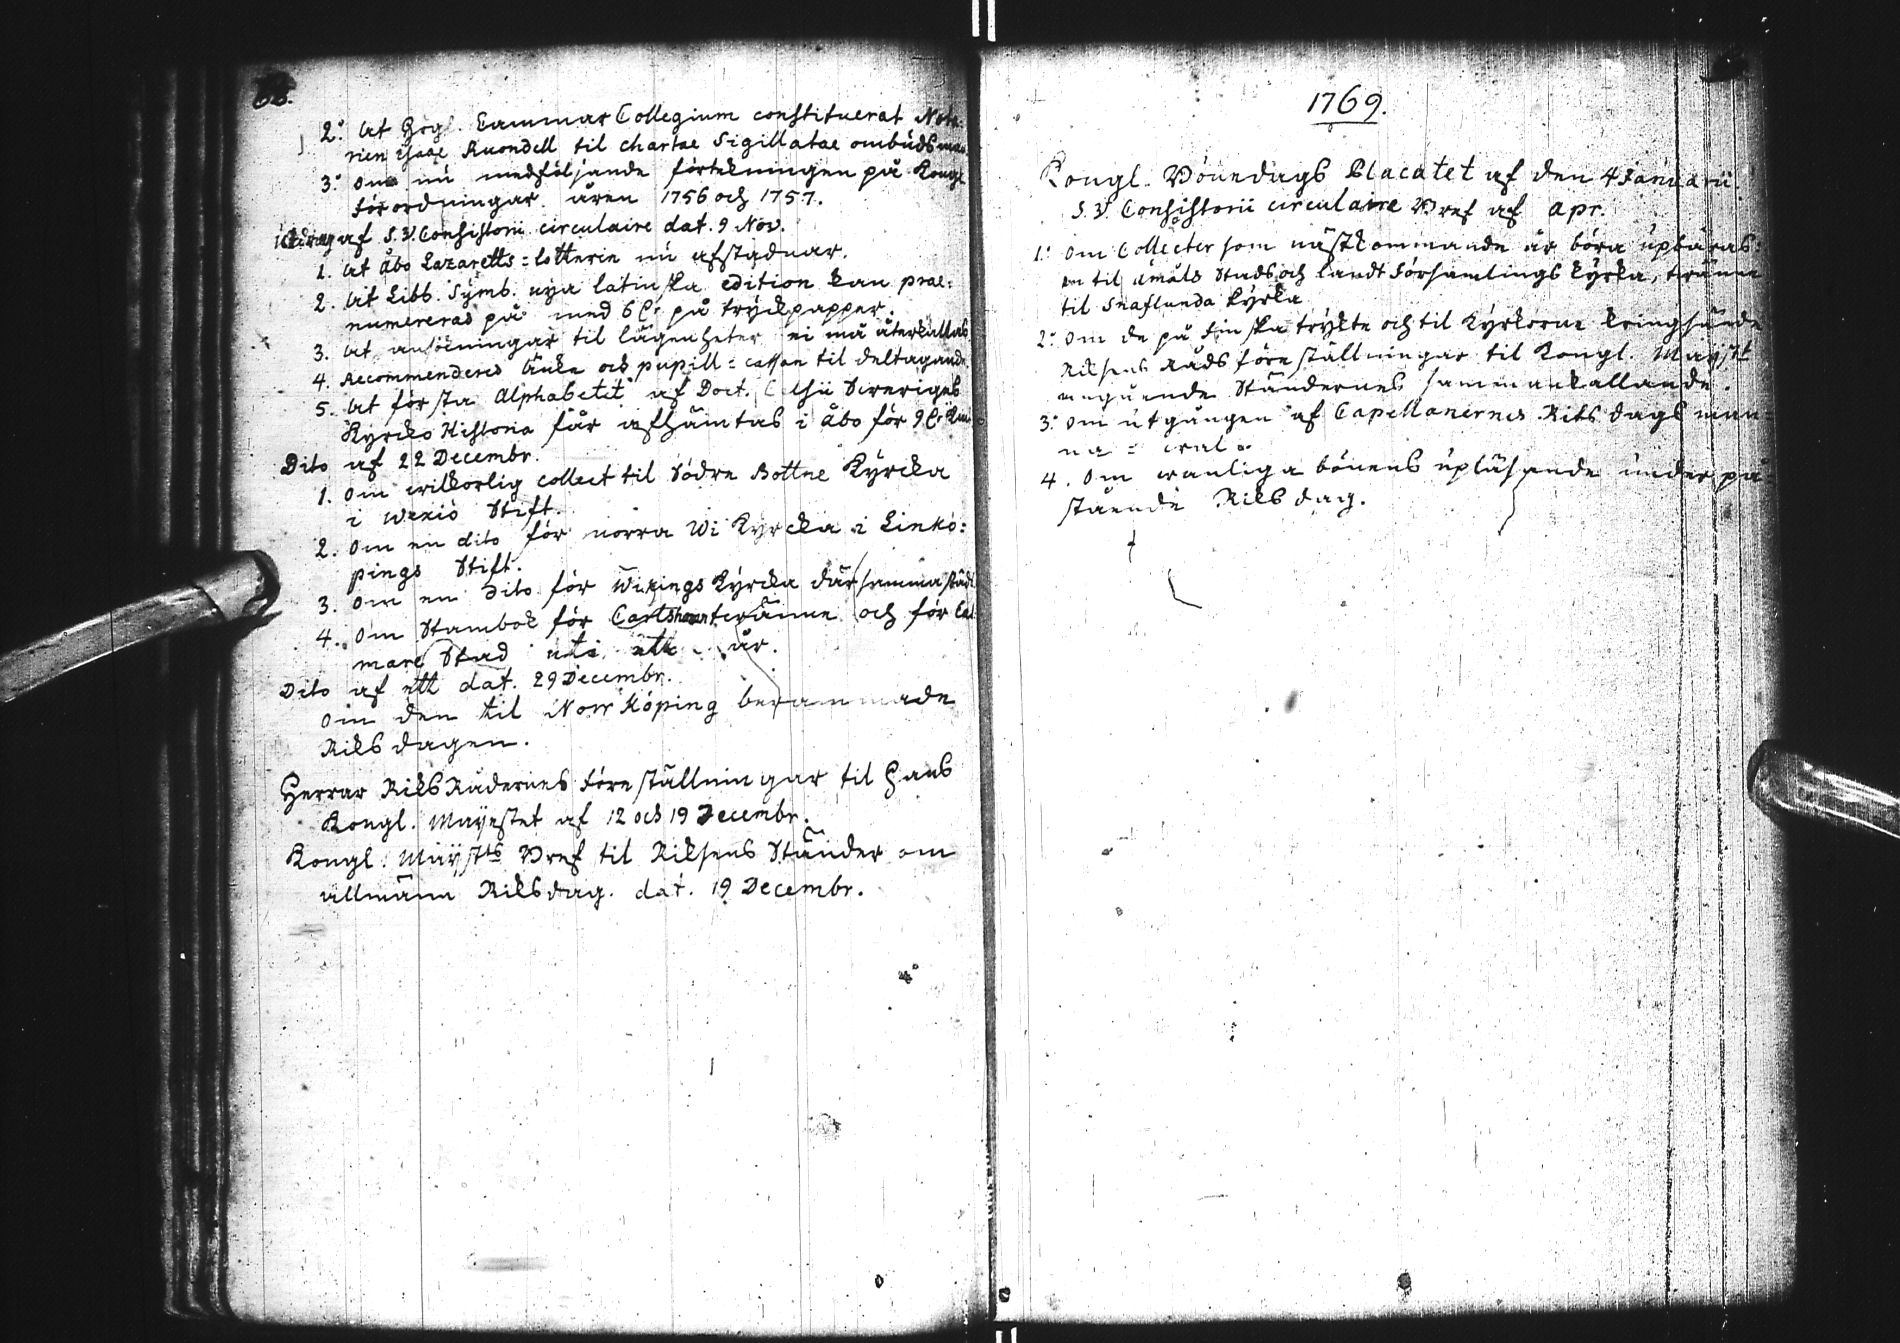 2:o At Högl. Cammar Collegium constituerat Nota-
rien Isaac Ruondell til chartae Sigillatae ombudsman.
3:o om nu medföljande förtekningen på Kongl.
förordningar åren 1756 och 1757.
Utdrag af S.V. Consistorii circulaire dat. 9 Nov.
1. At Åbo Lazaretts=lotterie nu afstadnar.
2. At Libb. Symb. nya latinska edition kan prae=
numereras på med 6 på tryckpapper.
3. At ansökningar til lägenheter ei må återkallas
4. Recommenderes Änke och pupill=cassan til deltagande.
5. At första Alphabetet af Doct. Celsii Sveriges
Kyrcko Historia får afhämtas i Åbo för 9
Dito af 22 Decembr.
1. Om wilkorlig collect til Södre Bottne Kyrcka
i Wexiö Stift.
2. Om en dito för norra Wi Kyrcka i Linkö=
pings Stift.
3. Om en Dito för Wikings Kyrcka därsammastäds
4. Om Stambok för och för Cal
mare Stad uti ett år.
Dito af ett dat. 29 Decembr.
Om den til Norrköping berammade
Riksdagen.
Herrar RiksRådernes föreställningar til Hans
Kongl. Mayestet af 12 och 19 Decembr.
Kongl. Maysts Bref til Riksens Ständer om
allmänn Riksdag. dat. 19 Decembr.
1769.
Kongl. Bönedags Placatet af den 4 Januarii
S.V. Consistorii circulaire Bref af apr.
1:o Om Collecter som nästkommande år böra upbäras
en til Åmåls Stads och Landt Församlings Kyrka, tränne
til Snaflunda Kyrka
2:o Om de på Finska trykte och til Kyrkorne kringsände
Riksens Råds föreställningar til Kongl. Mayst
angående Ständernes sammankallande.
3:o Om utgången af Capellanernes Riksdags man=
na = wal.
4. Om wanliga bönens upläsande under på=
stående Riksdag.